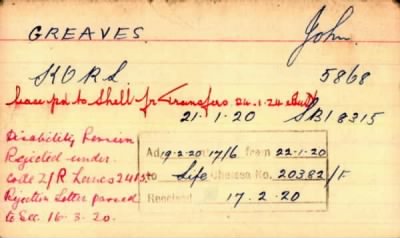 GREAVES. John.
KORL 5868
Case pd to Shell fr Transfers 24.1.24
21.1.20 SB1 8315
Disability Pension
Rejected under
code 2/R Lancs 2415.
Rejection Letter passed
to Sec. 16.3.20.
Ad 19.2.20 17/6 from 22.1.20
to Life Chelsea No. 20382/F
Received 17.2.20